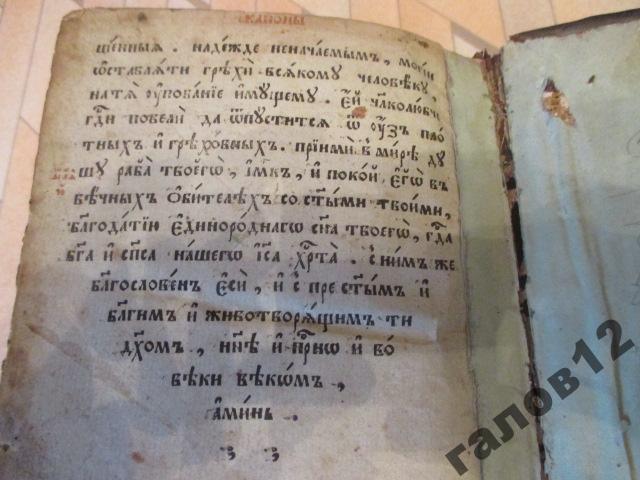 ще́нныя . наде́жде неноча́емымъ, моги́и
ѡ҆ставлѧ́ти грѣхѝ всѧ́кому человѣ́кꙋ,
на тѧ̀ ᲂу҆пова́нїе и҆мꙋ́щемꙋ. є҆́й чл҃колю́бче
гд҇и повелѝ да ѿпꙋ́стится ѿ ᲂу҆́зъ пло́
тныхъ и҆ грѣхо́вныхъ. прїимѝ в ми́рѣ дꙋ
шꙋ раба̀ твоегѡ̀, і҆́мкъ, и҆ поко́й є҆гѡ̀ въ
вѣ́чныхъ ѻ҆би́телѣхъ со ст҃ы́ми твои́ми,
бл҃года́тїю є҆диноро́днагѡ сн҃а твоегѡ̀, гд҇а
бг҃а и҆ сп҃са на́шегѡ і҆с҃а хр҇та̀ . с ни́мъ же
бл҃гослове́нъ є҆сѝ, и҆ с пре ст҃ы́мъ и҆
бл҃ги́мъ и҆ животворѧ́щимъ ти
дх҃омъ, ны́нѣ и҆ при́снѡ и҆ во́
вѣки вѣкѡ́мъ,
а҆ми́нь .
галов12